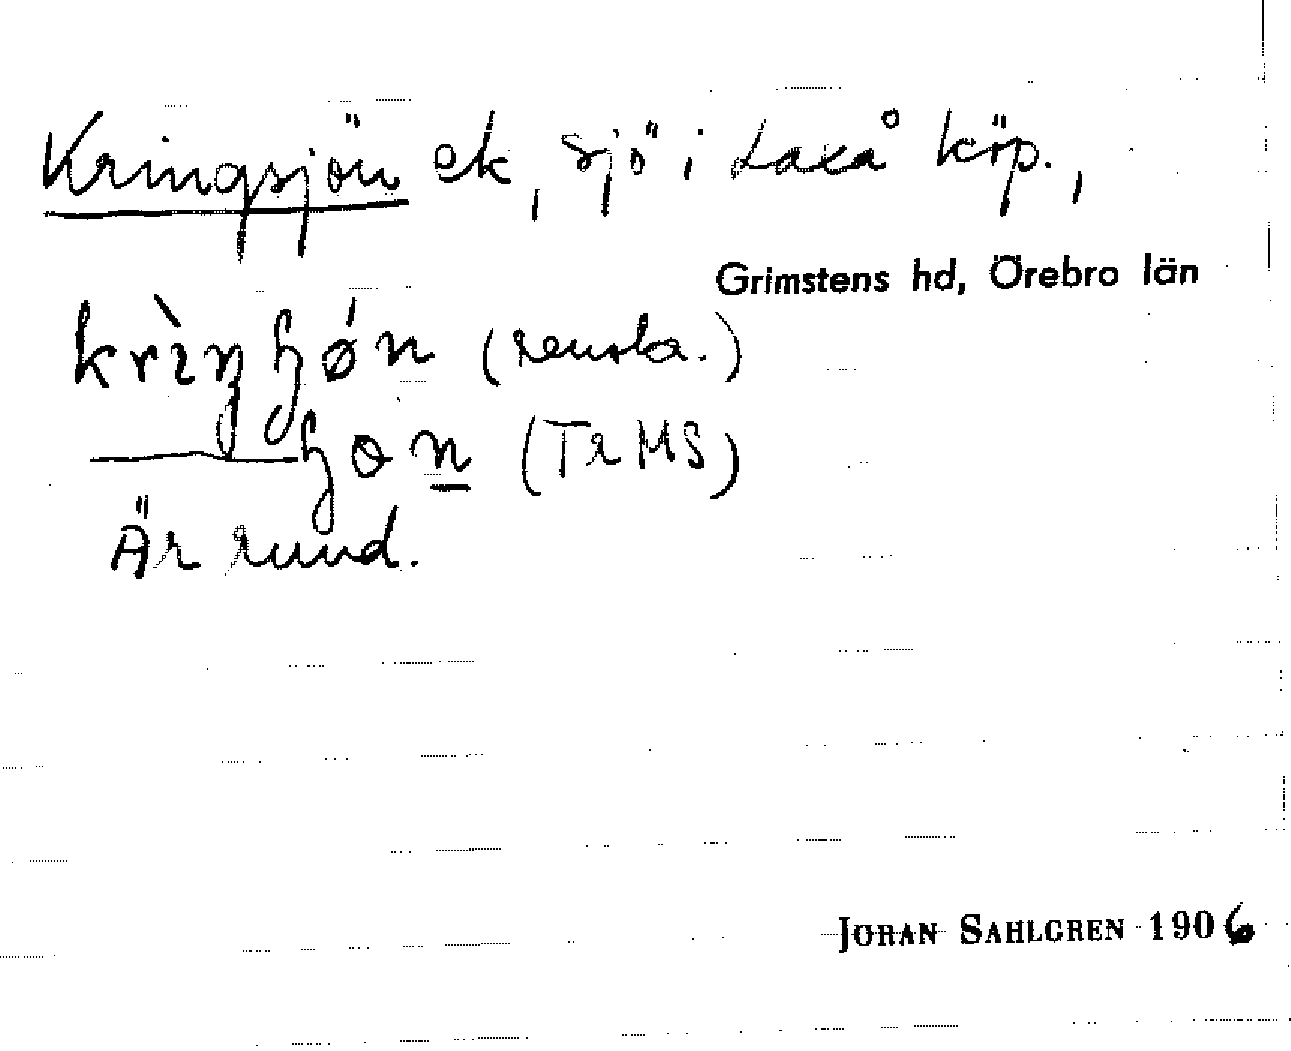 Kringsjön ek, sjö i Laxå köp.,
Grimstens hd, Örebro län
krìŋɧǿn (renska.)
——ɧon (TRMS)
Är rund.
JOHAN SAHLGREN 1906